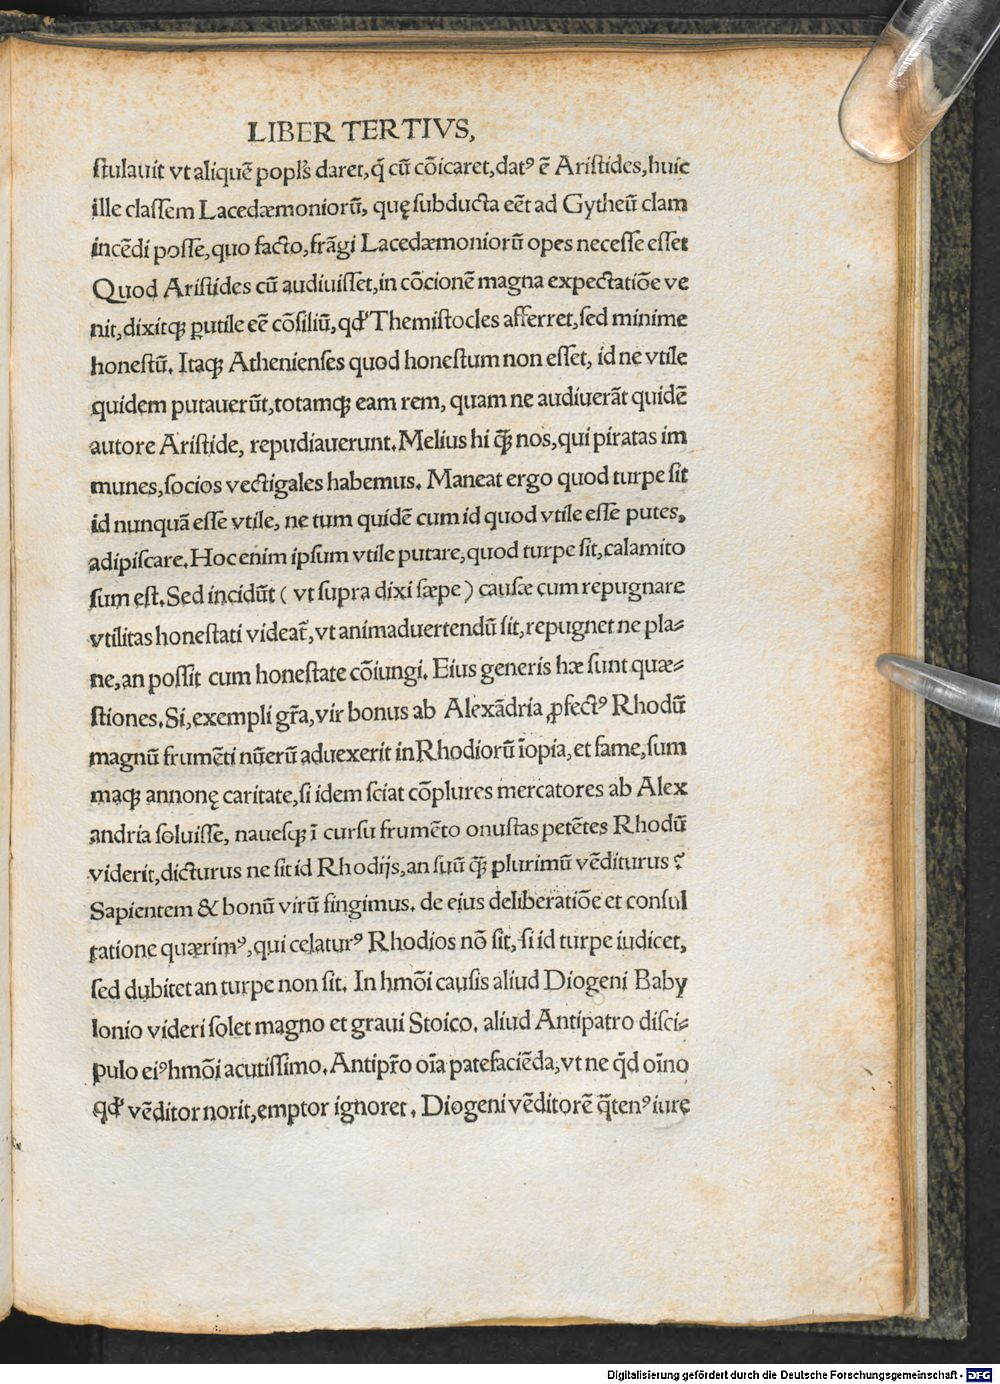 LIBER TERTIVS,
ſtulauit vt aliquē popl's daret, q̄ cū cōicaret, datꝰ ē Ariſtides, huic
ille claſſem Lacedæmoniorū, quę ſubducta eēt ad Gytheū clam
incēdi poſſe, quo facto, frāgi Lacedæmoniorū opes neceſſe eſſet
Quod Ariſtides cū audiuiſſet, in cōcionē magna expectatiōe ve
nit, dixitqꝫ ꝑutile eē cōſiliū, qđ Themiſtocles afferret, ſed minime
honeſtū. Itaqꝫ Athenienſes quod honeſtum non eſſet, id ne vtile
quidem putauerūt, totamqꝫ eam rem, quam ne audiuerāt quidē
autore Ariſtide, repudiauerunt. Melius hi q̄ꝫ nos, qui piratas im
munes, ſocios vectigales habemus. Maneat ergo quod turpe ſit
id nunquā eſſe vtile, ne tum quidē cum id quod vtile eſſe putes,
adipiſcare. Hoc enim ipſum vtile putare, quod turpe ſit, calamito
ſum eſt. Sed incidūt ( vt ſupra dixi ſæpe ) cauſæ cum repugnare
vtilitas honeſtati videat̃, vt animaduertendū ſit, repugnet ne pla⸗
ne, an poſſit cum honeſtate cōiungi. Eius generis hæ ſunt quæ⸗
ſtiones. Si, exempli gr̄a, vir bonus ab Alexādria ꝓfectꝰ Rhodū
magnū frumēti nūerū aduexerit in Rhodiorū īopia, et fame, ſum
maqꝫ annonę caritate, ſi idem ſciat cōplures mercatores ab Alex
andria ſoluiſſe, naueſqꝫ ī curſu frumēto onuſtas petētes Rhodū
viderit, dicturus ne ſit id Rhodijs, an ſuū q̄ꝫ plurimū vēditurus ?
Sapientem & bonū virū fingimus. de eius deliberatiōe et conſul
tatione quærimꝰ, qui celaturꝰ Rhodios nō ſit, ſi id turpe iudicet,
ſed dubitet an turpe non ſit. In hmōi cauſis aliud Diogeni Baby
lonio videri ſolet magno et graui Stoico. aliud Antipatro diſci⸗
pulo eiꝰ hmōi acutiſſimo. Antipr̄o oīa patefaciēda, vt ne q̄d oīno
qđ vēditor norit, emptor ignoret. Diogeni vēditorē q̄tenꝰ iure
Digitalisierung gefördert durch die Deutsche Forschungsgemeinschaft - DFG